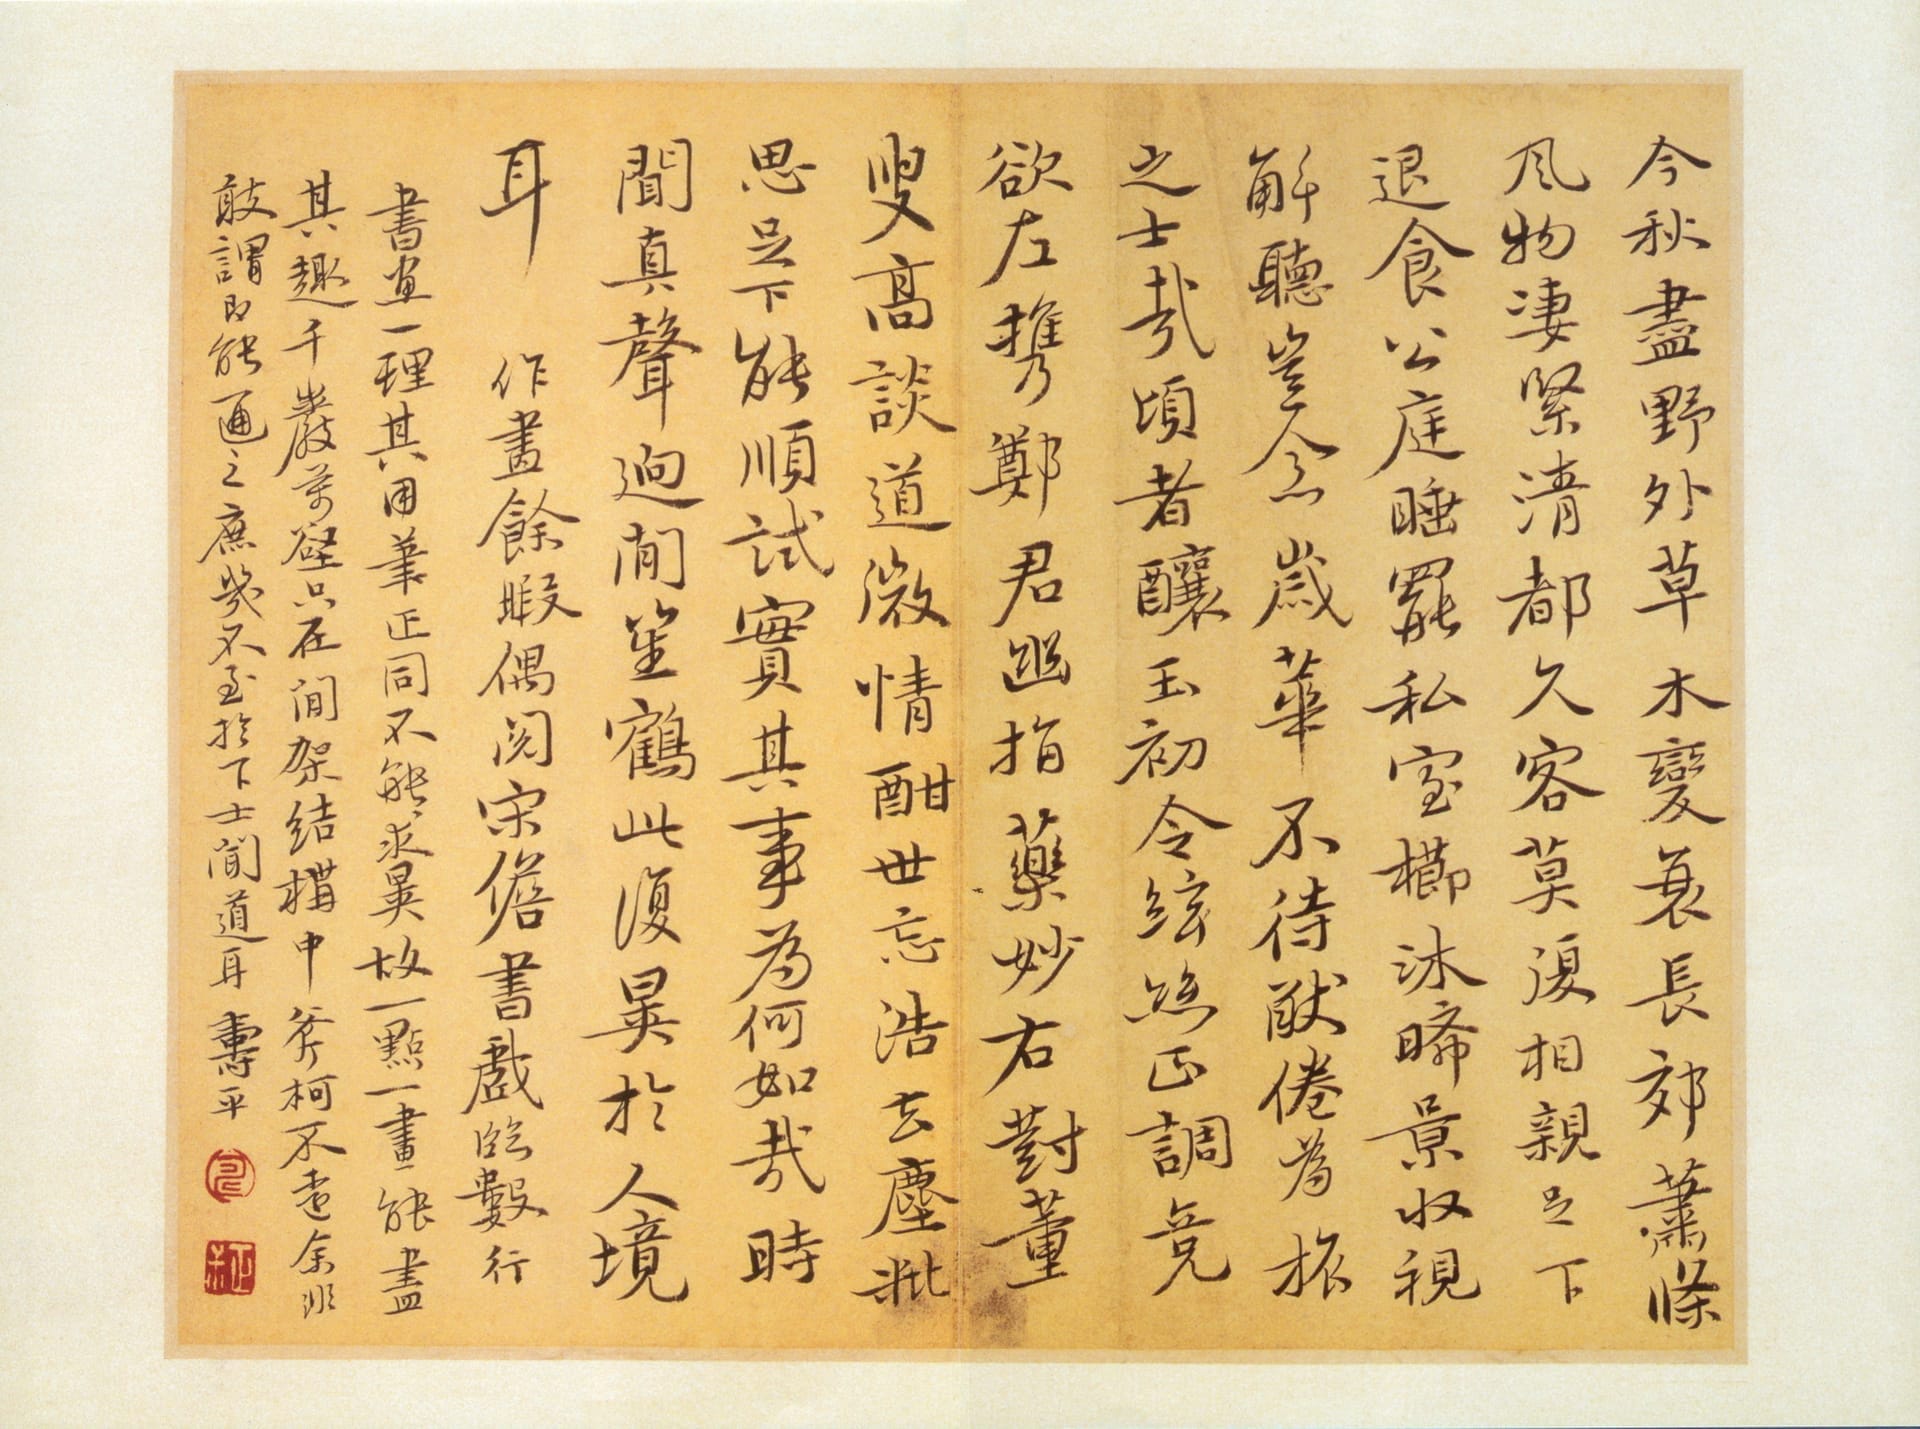 今秋盡野外草木變衰長郊蕭條
风物淒緊清都久客莫復相親足下
退食公庭睡罷私室櫛沐晞景収視
觧聽豈念歲華不待猒倦為振
之士㢤頃者釀玉初令絃絲正調竟
欲左携鄭君幽指藥妙右對董
叟高談道微情酣世忘浩去塵粃
思足下能順試實其事為何如㢤時
聞真聲迥閒笙鶴此復異於人境
耳
作畫餘暇偶閱宋儋書戲臨數行
書画一理其用筆正同不能求異故一點一畫能盡
其趣千巖萬壑只在間架結構中斧柯不遠余非
敢謂即能通之庶幾不至於下士聞道耳 壽平